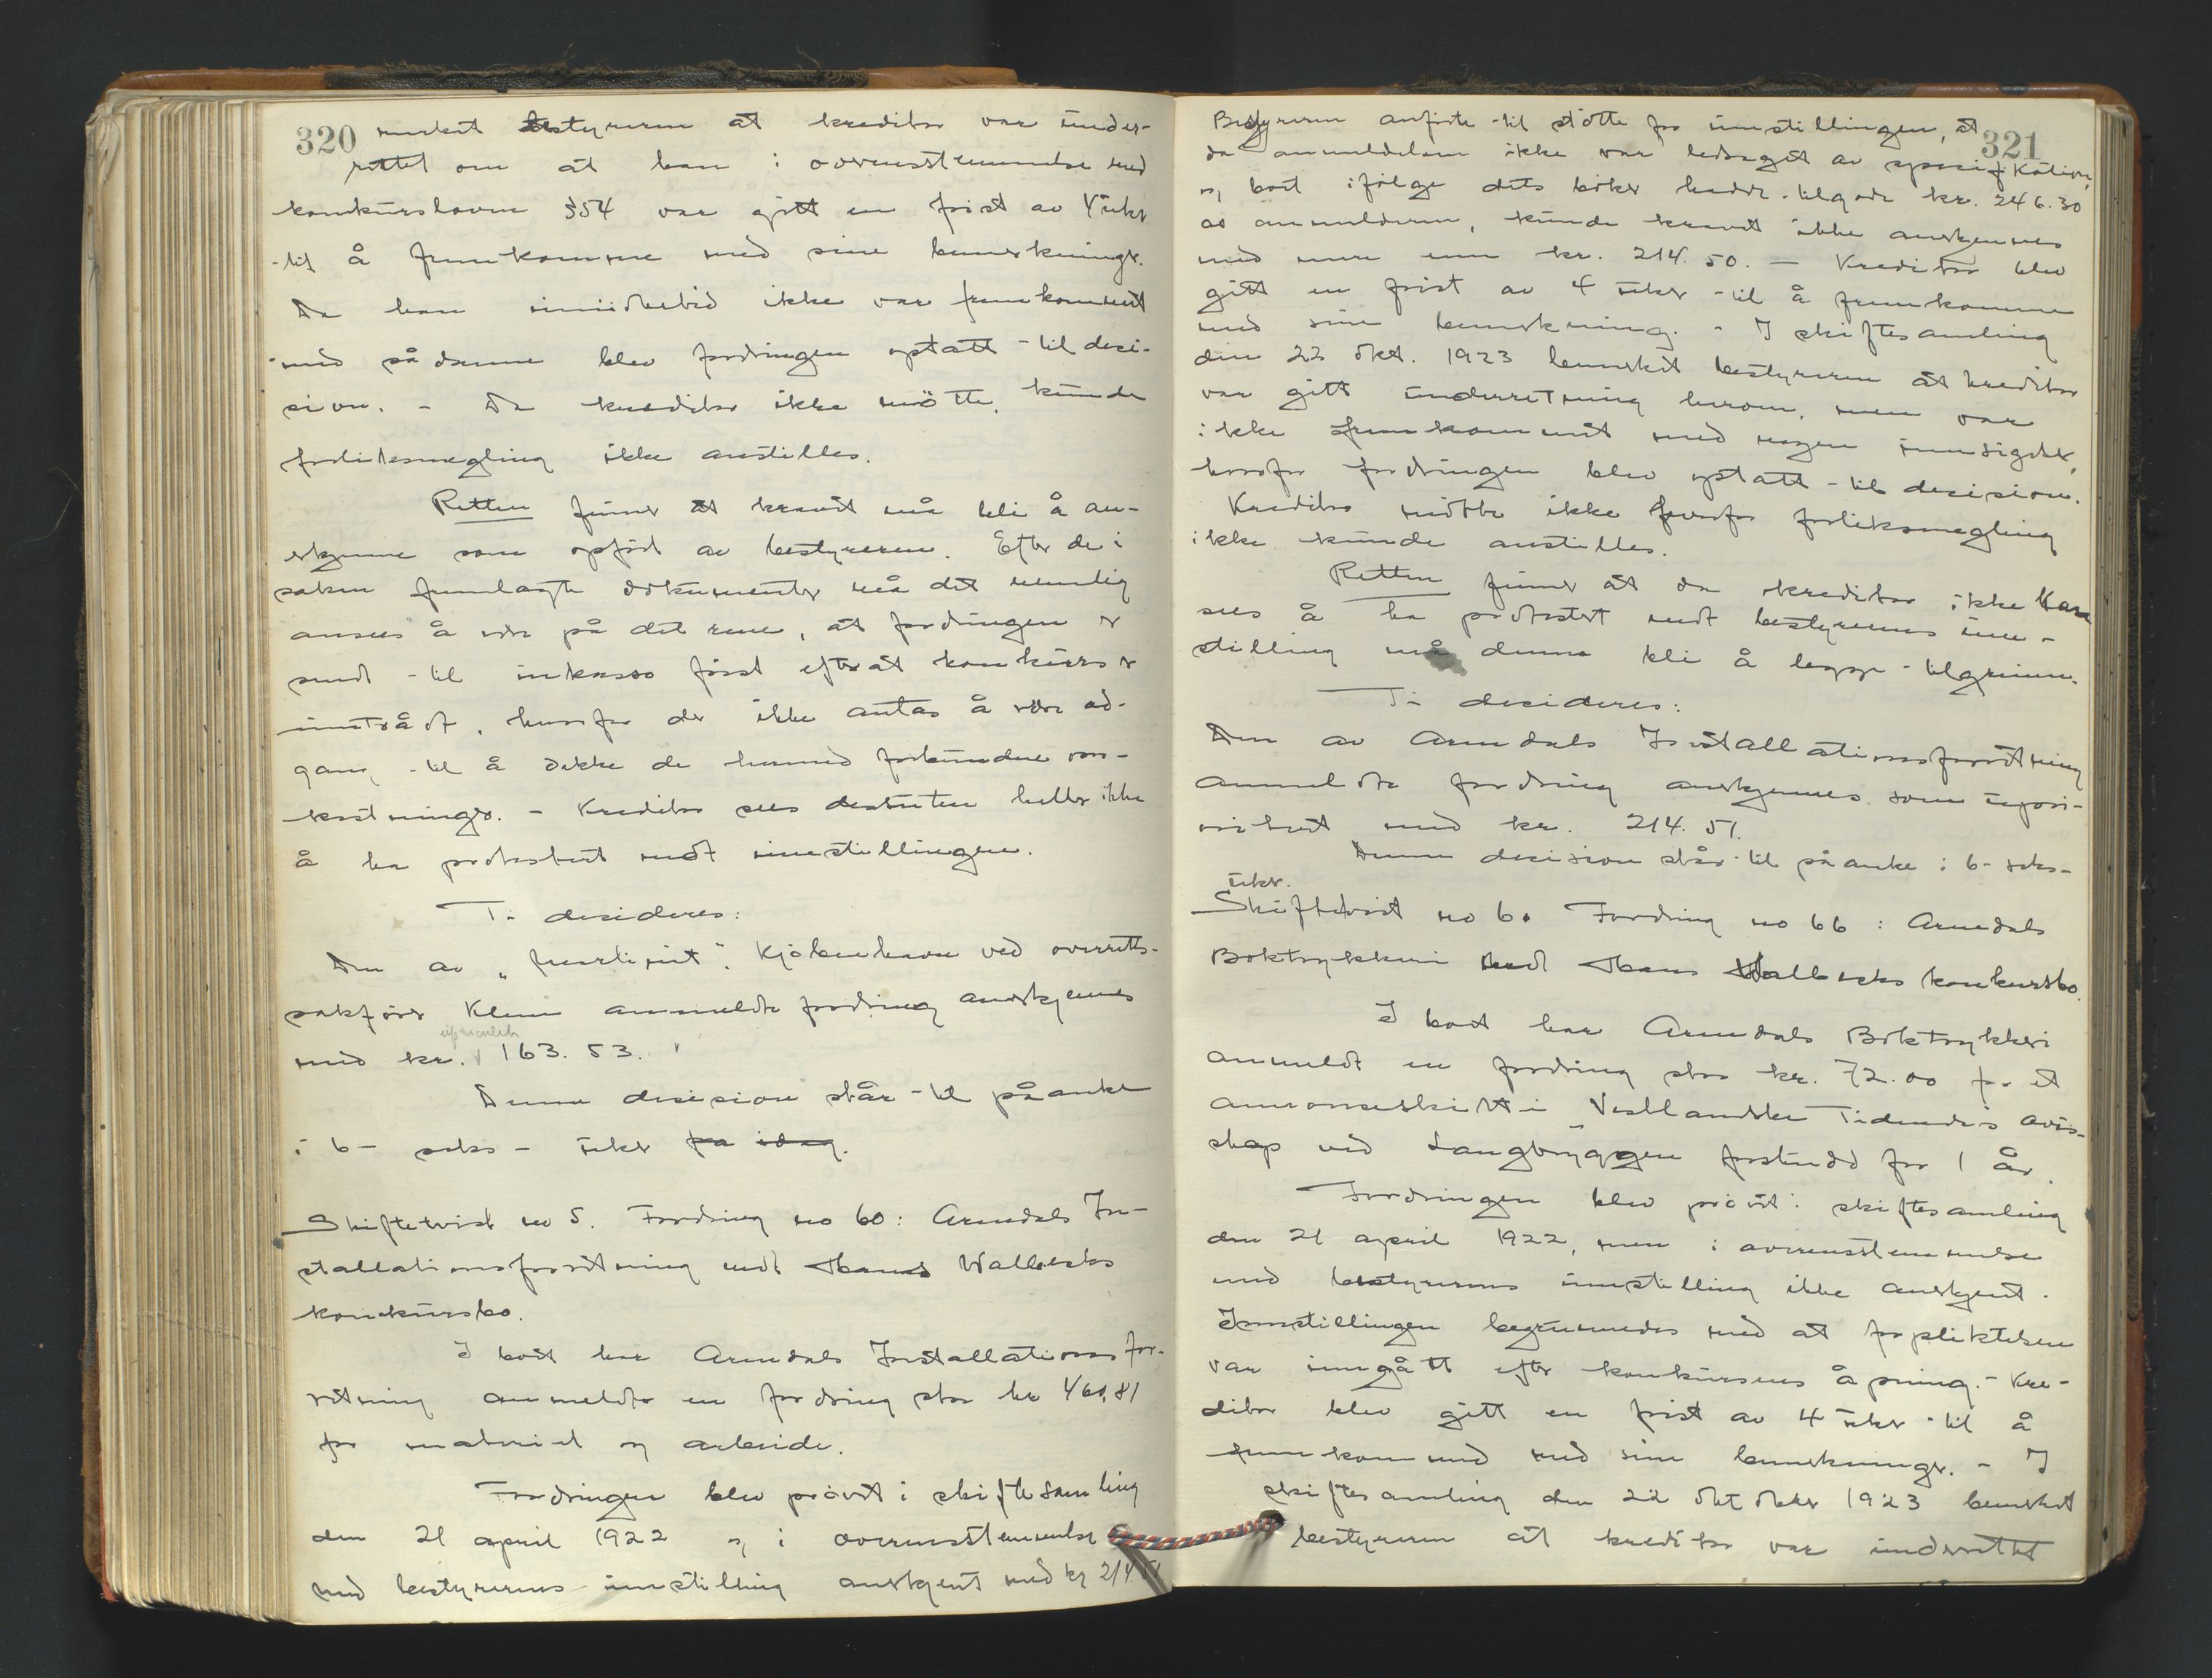 320
merket bestyreren at kreditor var under-
rettet om at han i overensstemmelse med
konkursloven §54 var gitt en frist av 4 uker
til å fremkomme med sine bemerkninger.
Da han imidlertid ikke var fremkommet
med sådanne blev fordringen optatt til deci-
sion. - Da kreditor ikke møtte, kunde
forliksmegling ikke anstilles.
Retten finner at kravet må bli å an-
erkjenne som opført av bestyreren. Efter de i
saken fremlagte dokumenter må det nemlig
ansees å være på det rene, at fordringen er
sendt til inkasso først efterat konkurs er
inntrådt, hvorfor der ikke antas å være ad-
gang til å dekke de hermed forbundne om-
kostninger. - Kreditor sees dessuten heller ikke
å ha protestert mot innstillingen.
Ti decideres:
Den av „ " Kjøbenhavn ved overretts-
sakfører Klem anmeldte fordring anerkjennes
uprioritert
med kr. 163.53.
Denne decision står til påanke
i 6 - seks - uker fra idag.
Skiftetvist no 5. Fordring no 60: Arendals In-
stallationsforretning mot Hans Wallesks
konkursbo.
I boet har Arendals Installationsfor-
retning anmeldt en fordring stor kr 460,81
for materiel og arbeide.
Fordringen blev prøvet i skiftesamling
den 21 april 1922 og i overensstemmelse
med bestyrerens innstilling anerkjent med kr 214.51
321
Bestyreren anførte til støtte for innstillingen, at
da anmeldelsen ikke var ledsaget av specifikation,
og boet ifølge dets bøker hadde tilgode kr. 246.30
av anmelderen, kunde kravet ikke anerkjennes
med mere enn kr. 214.50. - Kreditor blev
gitt en frist av 4 uker til å fremkomme
med sin bemerkning. - I skiftesamling
den 22 okt. 1923 bemerket bestyreren at kreditor
var gitt underretning herom, men var
ikke fremkommet med nogen innsigelser,
hvorfor fordringen blev optatt til decision.
Kreditor møtte ikke hvorfor forliksmegling
ikke kunde anstilles.
Retten finner at da kreditor ikke kan
sees å ha protestert mot bestyrerens inn-
stilling må denne bli å legge til grunn.
Ti decideres:
Den av Arendals Installationsforretning
anmeldte fordring anerkjennes som upri-
oritert med kr. 214.51.
Denne decision står til påanke i 6 - seks -
uker.
Skiftetvist no 6. Fordring no 66: Arendals
Boktrykkeri mot Hans Wallesks konkursbo.
I boet har Arendals Boktrykkeri
anmeldt en fordring stor kr. 72.00 for et
annonseskilt i Vestlandske Tidende's avis-
skap ved Langbryggen forskudd for 1 år.
Fordringen blev prøvet i skiftesamling
den 21 april 1922, men i overensstemmelse
med bestyrerens innstilling ikke anerkjent.
Innstillingen begrunnedes med at forpliktelsen
var inngått efter konkursens åpning. - Kre-
ditor blev gitt en frist av 4 uker til å
fremkomme med sine bemerkninger. - I
skiftesamling den 22 oktober 1923 bemerket
bestyreren at kreditor var underrettet